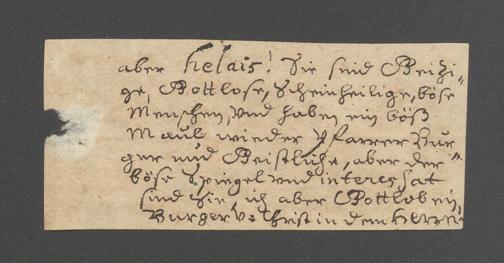 aber helais! Sie sind Geizi„
ge, Gottlose, Scheinheilige, böse
Menschen, Und haben ein böß
Maul wieder Pfarrer Bur„
ger und Geistliche, aber der„
böse Spiegel und interessat
sind Sie, ich aber Gottlob ein
Burger u. Christ in dem Herzen